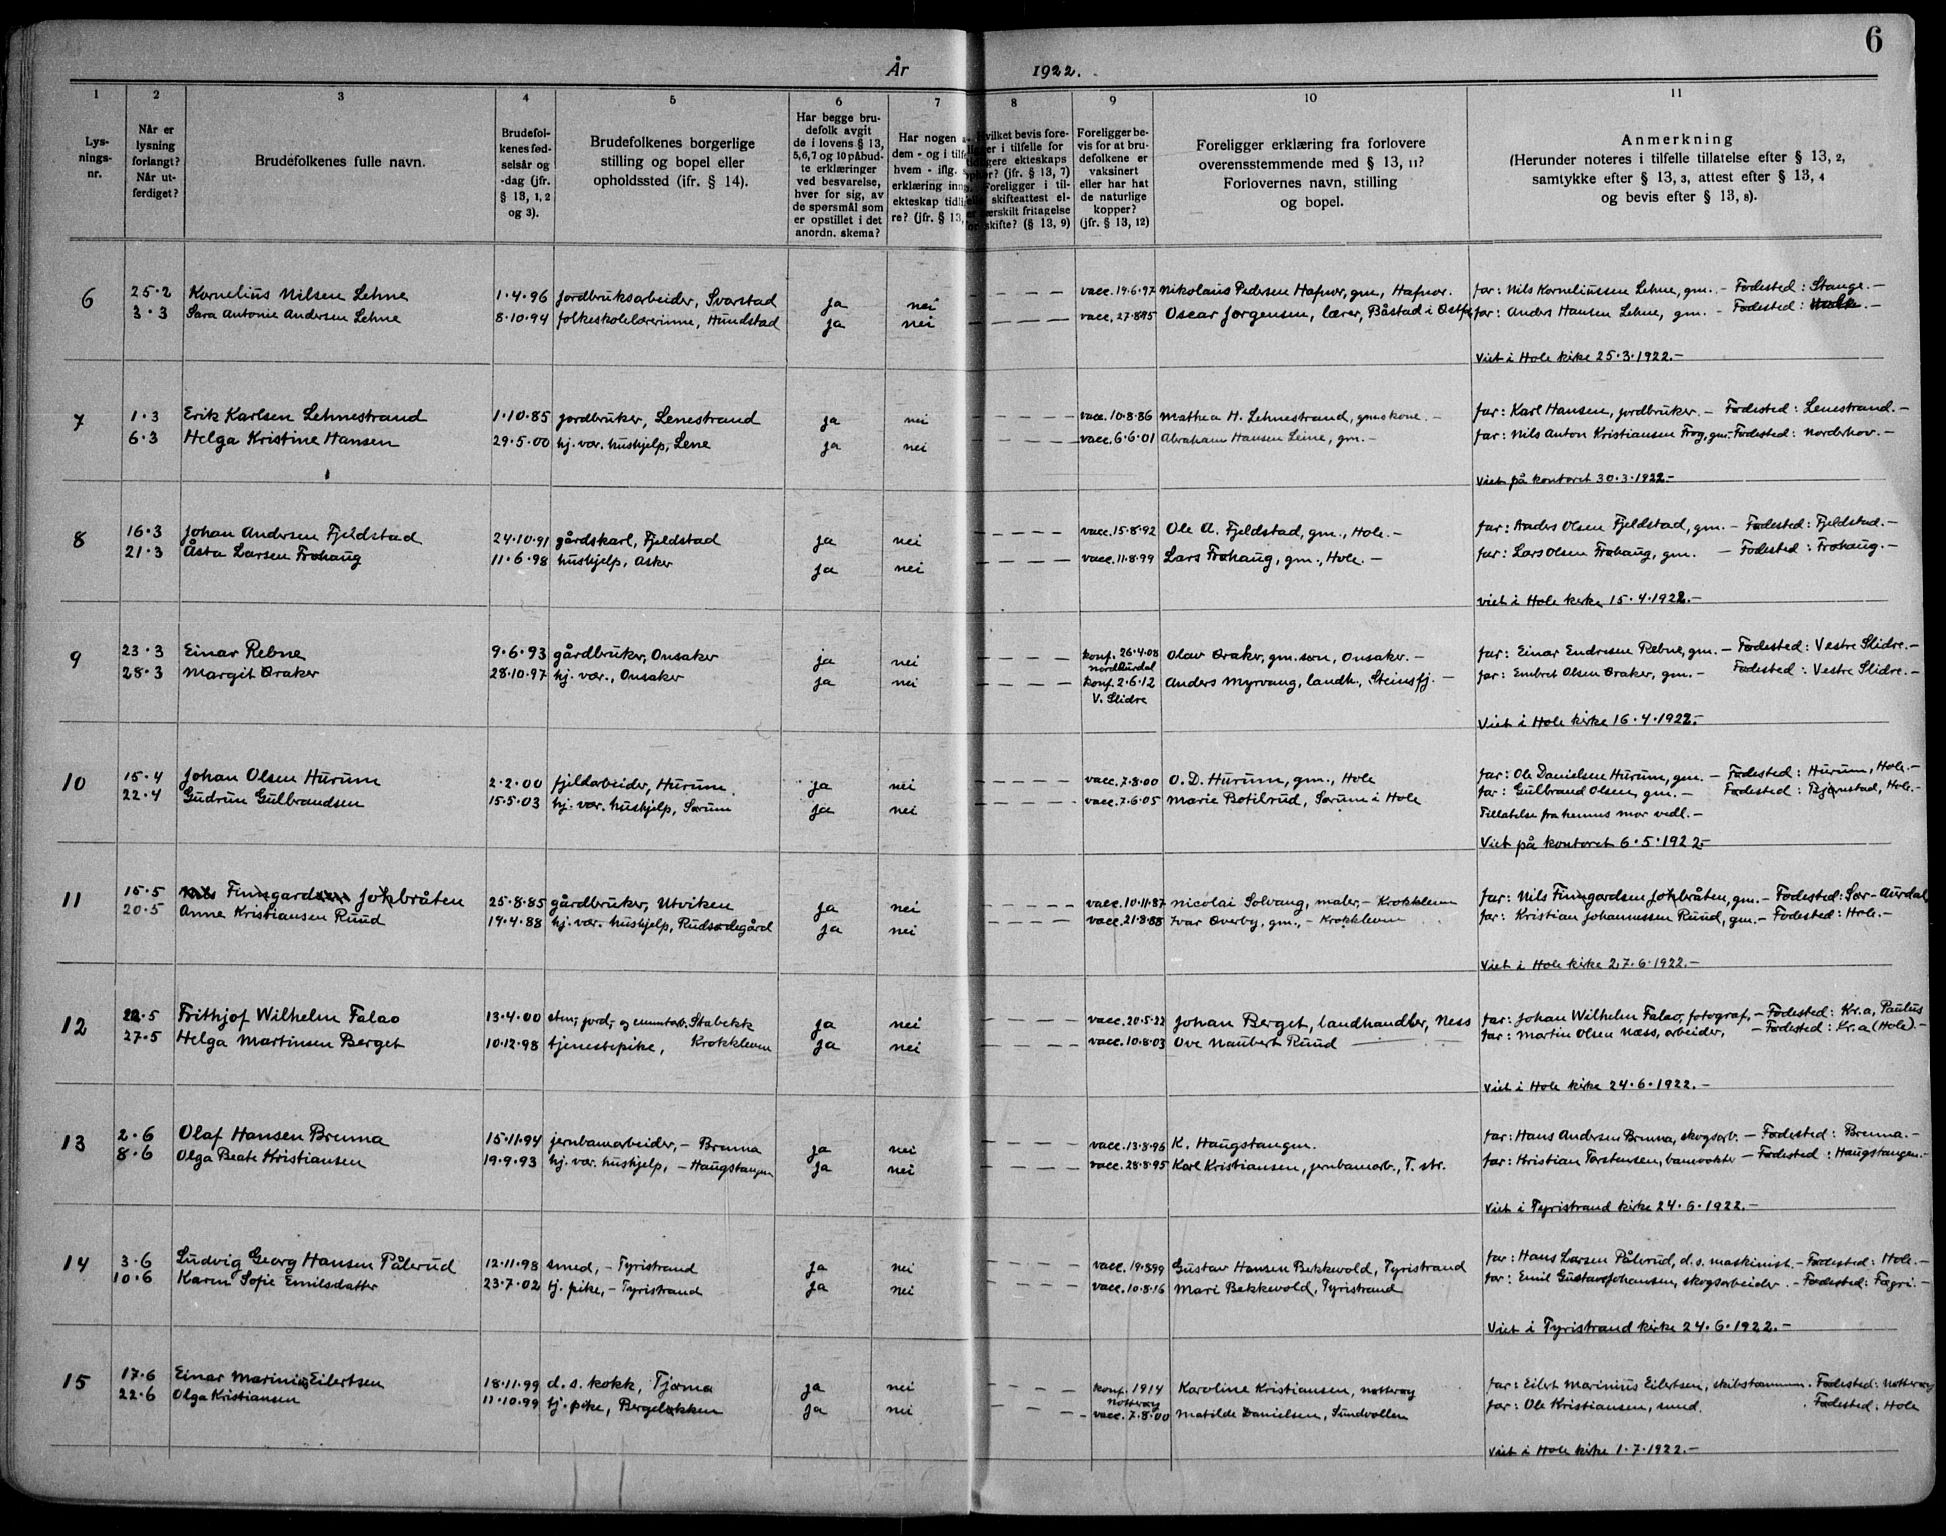 6
År 1922.
1 2 3 4 5 6 7 8 9 10 11
Lys-
nings-
nr.
Når er
lysning
forlangt?
Når ut-
ferdiget?
Brudefolkenes fulle navn.
Brudefol-
kenes fød-
selsår og
-dag (jfr.
§ 13, 1, 2
og 3).
Brudefolkenes borgerlige
stilling og bopel eller
opholdssted (ifr. § 14).
Har begge bru-
defolk avgit
de i lovens § 13,
5,6,7 og 10 påbud-
te erklæringer
ved besvarelse,
hver for sig, av
de spørsmål som
er opstillet i det
anordn. skema?
Har nogen a
dem - og i tilf
hvem - iflg.
erklæring inng
ekteskap tidli
re? (jfr. § 13,
vilket bevis fore-
er i tilfelle for
gere ekteskaps
? (jfr. § 13, 7)
Foreligger i til-
skifteattest el-
ærskilt fritagelse
skifte? (§ 13, 9)
Foreligger be-
vis for at bru-
defolkene er
vaksinert
eller har hat
de naturlige
kopper?
(jfr. § 13, 12)
Foreligger erklæring fra forlovere
overensstemmende med § 13, 11?
Forlovernes navn, stilling
og bopel.
Anmerkning
(Herunder noteres i tilfelle tillatelse efter § 13, 2,
samtykke efter § 13, 3, attest efter § 13, 4
og bevis efter § 13, 8).
6 25·2 Kornelius Nilsen Lehne 1·4·96 jordbruksarbeider, Svarstad ja nei — — — — vacc. 19·6·97 Nikolaus Pedersen Hafnor, gm., Hafnor. far: Nils Korneliussen Lehne, gm. – Fødested: Stange. –
3·3 Sara Antonie Andersen Lehne 8·10·94 folkeskolelærerinne, Hundstad ja nei — — — — vacc. 27·8·95 Oscar Jørgensen, lærer, Båstad i Østf. far: Anders Hansen Lehne, gm. – Fødested: Hole. –
Viet i Hole kirke 25·3·1922. –
7 1·3 Erik Karlsen Lehnestrand 1·10·85 jordbruker, Lenestrand ja nei — — — — vacc. 10·8·86 Mathea H. Lehnestrand, gmskone. – far: Karl Hansen, jordbruker. – Fødested: Lenestrand. –
6·3 Helga Kristine Hansen 29·5·00 hj. vær. hushjelp, Lene ja nei — — — — vacc. 6·6·01 Abraham Hansen Leine, gm. – far: Nils Anton Kristiansen Frog, gm. – Fødested: Norderhov. –
Viet på kontoret 30·3·1922. –
8 16·3 Johan Andersen Fjeldstad 24·10·91 gårdskarl, Fjeldstad ja nei — — — — vacc. 15·8·92 Ole A. Fjeldstad, gm., Hole. – far: Anders Olsen Fjeldstad, gm. – Fødested: Fjeldstad. –
21·3 Åsta Larsen Frøhaug 11·6·98 hushjelp, Asker ja nei — — — — vacc. 11·8·99 Lars Frøhaug, gm., Hole. – far: Lars Olsen Frøhaug, gm. – Fødested: Frøhaug. –
viet i Hole kirke 15·4·1922. –
9 23·3 Einar Rebne 9·6·93 gårdbruker, Onsaker ja nei — — — — konf. 26·4·08 Olav Øraker, gm. søn, Onsaker. – far: Einar Endresen Rebne, gm. – Fødested: Vestre Slidre. –
Nordaurdal
28·3 Margit Øraker 28·10·97 hj. vær., Onsaker ja nei — — — — konf. 2·6·12 Anders Myrvang, landh., Steinsfj. – far: Embret Olsen Øraker, gm. – Fødested: Vestre Slidre. –
V. Slidre
Viet i Hole kirke 16·4·1922. –
10 15·4 Johan Olsen Hurum 2·2·00 fjeldarbeider, Hurum. ja nei — — — — vacc. 7·8·00 O. D. Hurum, gm., Hole far: Ole Danielsen Hurum, gm. – Fødested: Hurum, Hole. –
22·4 Gudrun Gulbrandsen 15·5·03 hj. vær. hushjelp, Sørum ja nei — — — — vacc. 7·6·05 Marie Botilrud, Sørum i Hole far: Gulbrand Olsen, gm. – Fødested: Bjørnstad, Hole. –
Tillatelse fra hennes mor vedl. –
Viet på kontoret 6·5·1922. –
11 15·5 Nils Finngardsen Jonbråten 25·8·85 gårdbruker, Utviken ja nei — — — — vacc. 10·11·87 Nicolai Solvang, maler, – Krokkleven far: Nils Finngardsen Jonbråten, gm. – Fødested: Sør-Aurdal
20·5 Anne Kristiansen Ruud 19·4·88 hj. vær. hushjelp, Rudsødegård ja nei — — — — vacc. 21·8·88 Ivar Øverby, gm., – Krokkleven far: Kristian Johannessen Ruud, gm. – Fødested: Hole. –
Viet i Hole kirke 27·6·1922. –
12 22·5 Frithjof Wilhelm Falao 13·4·00 sten, jord, og ementarb. Stabekk ja nei — — — — vacc. 20·5·22 Johan Berget, landhandler, Ness far: Johan Wilhelm Falao, fotograf, – Fødested: Kr.a, Paulus
27·5 Helga Martinsen Berget 10·12·98 tjenestepike, Krokkleven ja nei — — — — vacc. 10·8·03 Ove Naubert Ruud far: Martin Olsen Næss, arbeider, – Fødested: Kr.a (Hole). –
Viet i Hole kirke 24·6·1922. –
13 2·6 Olaf Hansen Brenna 15·11·94 jernbanearbeider, – Brenna ja nei — — — — vacc. 13·8·96 K. Haugstangen. far: Hans Andersen Brenna, skogsarb. – Fødested: Brenna. –
8·6 Olga Beate Kristiansen 19·9·93 hj. vær. hushjelp, – Haugstangen ja nei — — — — vacc. 28·8·95 Karl Kristiansen, jernbanearb., T. str. far: Kristian Torstensen, banevokter – Fødested: Haugstangen. –
Viet i Tyristrand kirke 24·6·1922. –
14 3·6 Ludvig Georg Hansen Pålerud 12·11·98 smed, – Tyristrand ja nei — — — — vacc. 19·8·99 Gustav Hansen Bekkevold, Tyristrand far: Hans Larsen Pålerud, d.s. maskinist. – Fødested: Hole. –
10·6 Karen Sofie Emilsdatter 23·7·02 tj. pike, – Tyristrand ja nei — — — — vacc. 10·8·16 Mari Bekkevold, Tyristrand far: Emil Gustav Johansen, skogsarbeider. – Fødested: Fægri. –
Viet i Tyristrand kirke 24·6·1922. –
15 17·6 Einar Marinius Eilertsen 18·11·99 d.s. kokk, Tjøme ja nei — — — — konf. 1914 Karoline Kristiansen, Nøtterøy far: Eilert Marinius Eilertsen, skibstømmerm. Fødested: Nøtterøy
Nøtterøy
22·6 Olga Kristiansen 11·10·99 tj. pike, Bergeløkken ja nei — — — — vacc. 7·8·00 Matilde Danielsen, Sundvollen far: Ole Kristiansen, smed. Fødested: Hole
Viet i Hole kirke 1·7·1922. –